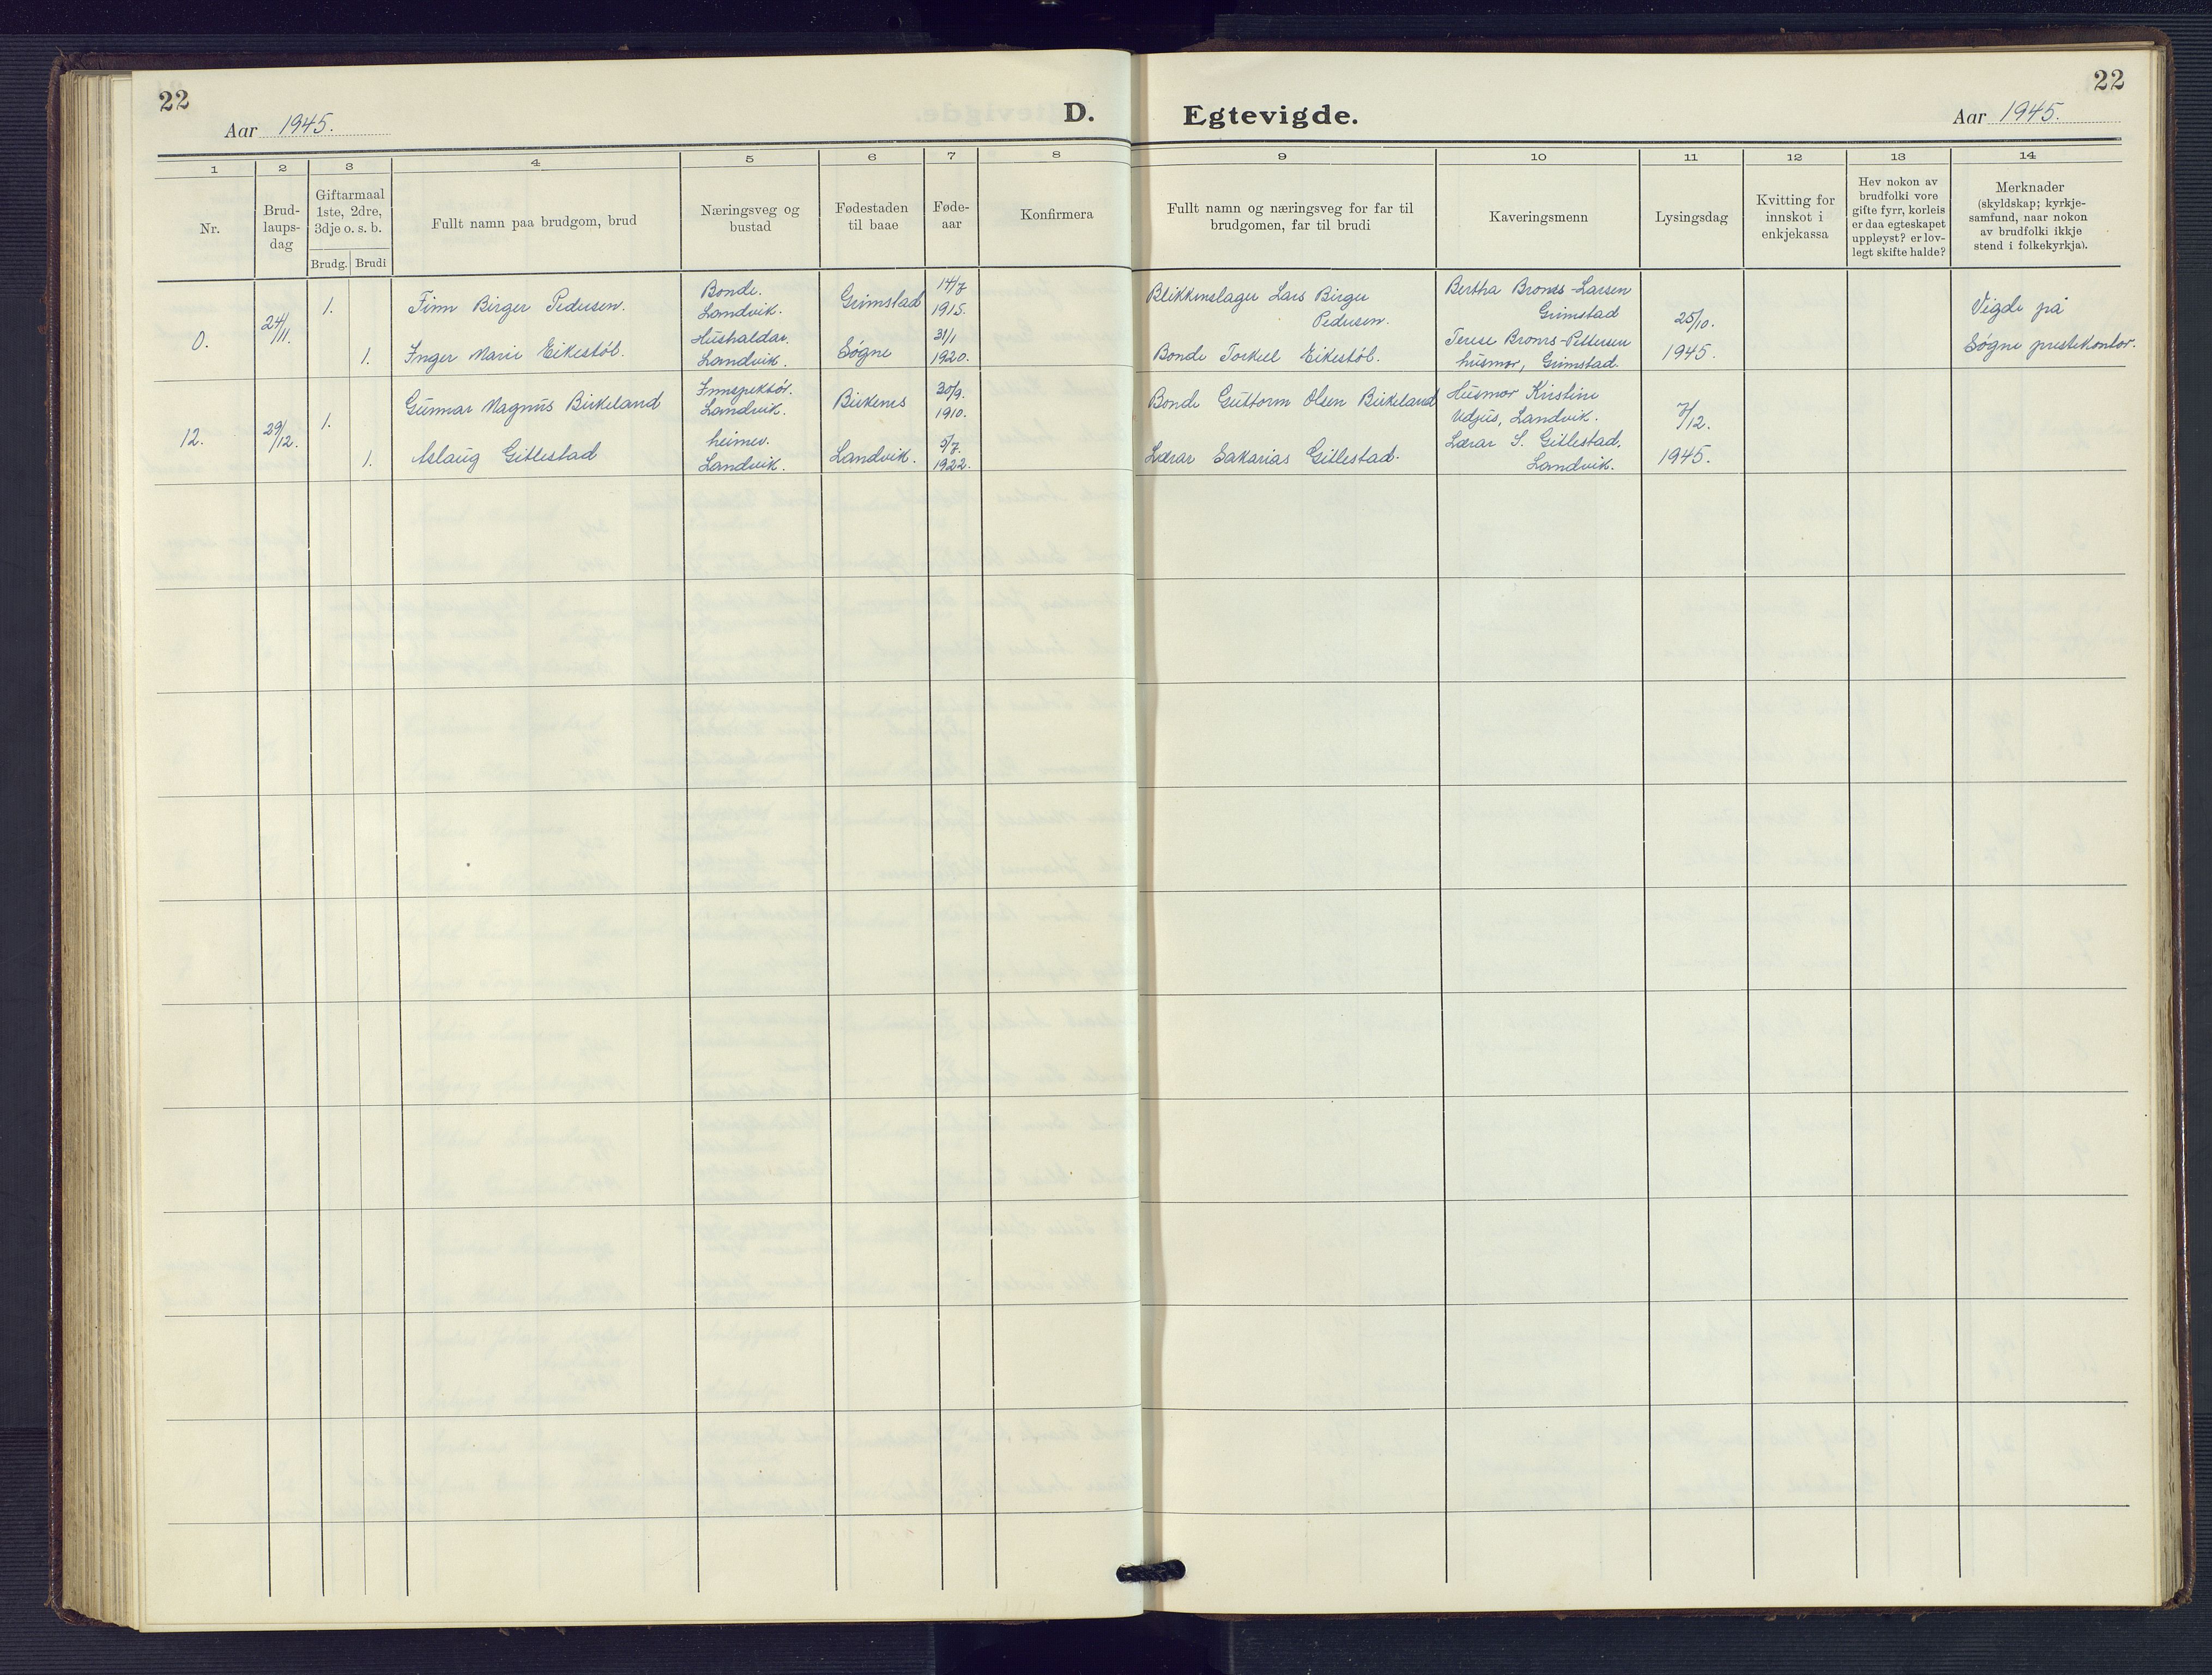 22
Aar 1945.
D. Egtevigde.
22
Aar 1945.
1 2 3 4 5 6 7 8 9 10 11 12 13 14
Nr.
Brud-
laups-
dag
Giftarmaal
1ste, 2dre,
3dje o. s. b.
Brudg. Brudi
Fullt namn paa brudgom, brud
Næringsveg og
bustad
Fødestaden
til baae
Føde-
aar
Konfirmera
Fullt namn og næringsveg for far til
brudgomen, far til brudi
Kaveringsmenn
Lysingsdag
Kvitting for
innskot i
enkjekassa
Hev nokon av
brudfolki vore
gifte fyrr, korleis
er daa egteskapet
uppløyst? er lov-
legt skifte halde?
Merknader
(skyldskap; kyrkje-
samfund, naar nokon
av brudfolki ikkje
stend i folkekyrkja).
0.
24/11.
1.
Finn Birger Pedersen.
Bonde.
Landvik.
Grimstad
14/7
1915.
Blikkenslager Lars Birger
Pedersen.
Bertha Broms-Larsen
Grimstad
25/10.
1945.
Vigde på
Søgne prestekontor.
1.
Inger Marie Eikestøl.
Hushaldar.
Landvik.
Søgne
31/1
1920.
Bonde Torkel Eikestøl.
Terese Broms-Pettersen
husmor, Grimstad.
12.
29/12.
1.
Gunnar Magnus Birkeland
Innspektør.
Landvik.
Birkenes
30/9.
1910.
Bonde Guttorm Olsen Birkeland
Husmor Kristine
Udjus, Landvik.
7/12.
1945.
1.
Aslaug Gitlestad
heimev.
Landvik.
Landvik.
5/7.
1922.
Lærar Sakarias Gitlestad.
Lærar S. Gitlestad,
Landvik.